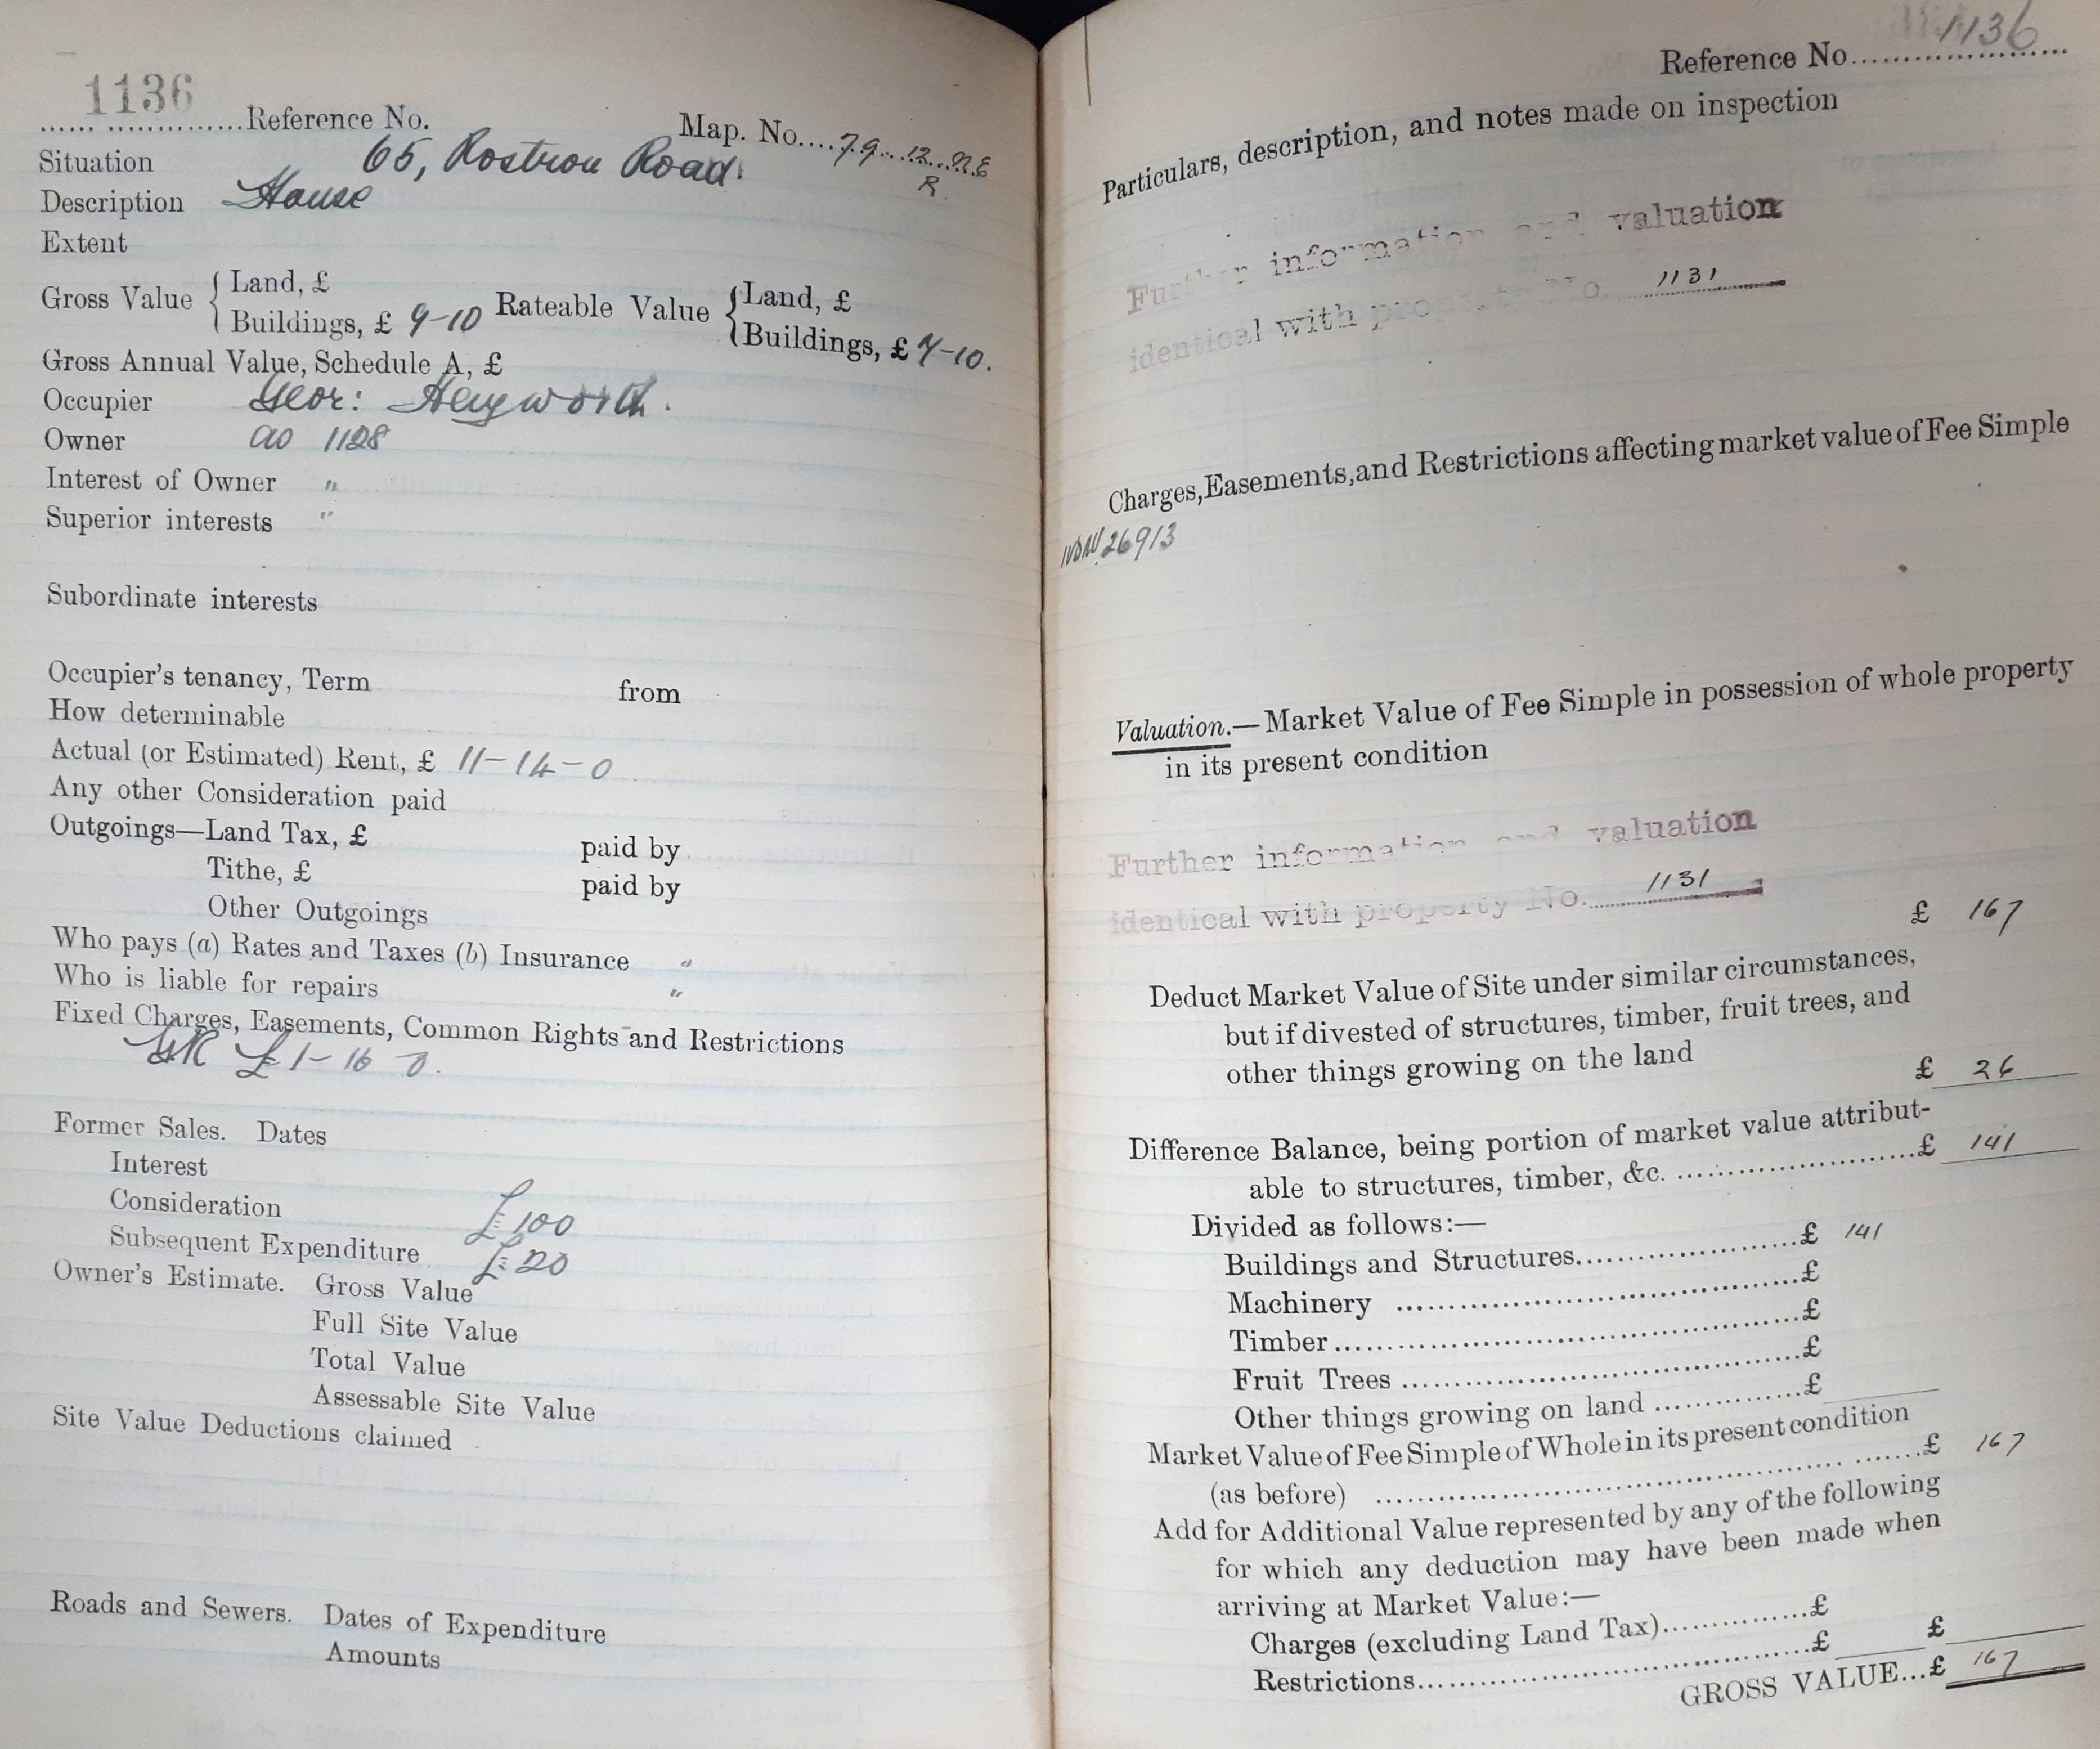 1136
...... ..............Reference No. Map. No....79..12..N.E
R.
Situation 65, Rostron Road.
Description House
Extent
Gross Value { Land, £ Rateable Value { Land, £
Buildings, £ 9-10 Buildings, £ 7-10.
Gross Annual Value, Schedule A, £
Occupier Geor: Heyworth.
Owner as 1128
Interest of Owner "
Superior interests "
Subordinate interests
Occupier's tenancy, Term from
How determinable
Actual (or Estimated) Rent, £ 11-14-0
Any other Consideration paid
Outgoings—Land Tax, £ paid by
Tithe, £ paid by
Other Outgoings
Who pays (a) Rates and Taxes (b) Insurance "
Who is liable for repairs "
Fixed Charges, Easements, Common Rights and Restrictions
GR £1-16-0.
Former Sales. Dates
Interest
Consideration £100
Subsequent Expenditure £20
Owner's Estimate. Gross Value
Full Site Value
Total Value
Assessable Site Value
Site Value Deductions claimed
Roads and Sewers. Dates of Expenditure
Amounts
Reference No...1136...
Particulars, description, and notes made on inspection
Further information and valuation
identical with property No. 1131
Charges, Easements, and Restrictions affecting market value of Fee Simple
26913
Valuation.—Market Value of Fee Simple in possession of whole property
in its present condition
Further information and valuation
identical with property No. 1131
£ 167
Deduct Market Value of Site under similar circumstances,
but if divested of structures, timber, fruit trees, and
other things growing on the land
£ 26
Difference Balance, being portion of market value attribut-
able to structures, timber, &c. ........................£ 141
Divided as follows:—
Buildings and Structures........................£ 141
Machinery ........................................£
Timber............................................£
Fruit Trees ......................................£
Other things growing on land ..............£
Market Value of Fee Simple of Whole in its present condition
(as before) ..................................................£ 167
Add for Additional Value represented by any of the following
for which any deduction may have been made when
arriving at Market Value:—
Charges (excluding Land Tax)..............£
Restrictions......................................£ £
GROSS VALUE...£ 167